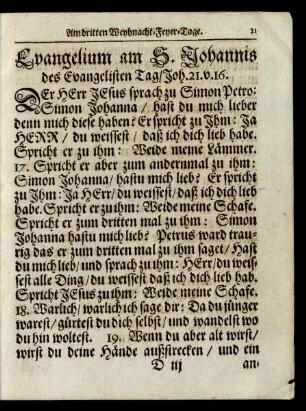 Am dritten Weyhnacht-Feyer-Tage. 21
Evangelium am S. Johannis
des Evangelisten Tag/Joh. 21. v. 16.
DEr HErr JEsus sprach zu Simon Petro:
Simon Johanna / hast du mich lieber
denn mich diese haben? Er spricht zu Ihm: Ja
HERR / du weissest / daß ich dich lieb habe.
Spricht er zu ihm: Weide meine Lämmer.
17. Spricht er aber zum andernmal zu ihm:
Simon Johanna / hastu mich lieb? Er spricht
zu Ihm: Ja HErr/ du weissest/ daß ich dich lieb
habe. Spricht er zu ihm: Weide meine Schafe.
Spricht er zum dritten mal zu ihm: Simon
Johanna hastu mich lieb? Petrus ward trau-
rig das er zum dritten mal zu ihm saget/ Hast
du mich lieb/ und sprach zu ihm: HErr/ du weis-
sest alle Ding/ du weissest daß ich dich lieb hab.
Spricht JEsus zu ihm: Weide meine Schafe.
18. Warlich/ warlich ich sage dir: Da du jünger
warest/ gürtest du dich selbst/ und wandelst wo
du hin woltest. 19. Wenn du aber alt wirst/
wirst du deine Hände außstrecken/ und ein
D iij an-